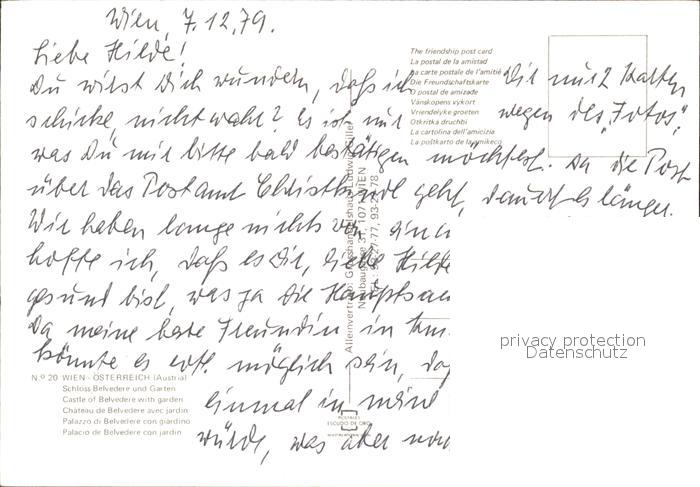 Wien, 7.12.79.
Liebe Hilde!
Du wirst Dich wundern, daß ich Dir nur 2 Karten
schicke, nicht wahr? Es ist nur wegen des "Fotos",
was Du mir bitte bald bestätigen möchtest. Da die Post
über das Postamt Christkindl geht, dauert es länger.
Wir haben lange nichts von
hoffe ich, daß es Dir, liebe Hilde
gesund bist, was ja die Hauptsac
Da meine beste Freundin in
könnte es evtl. möglich sein, daß
einmal in meine
würde, was aber noch
The friendship post card
La postal de la amistad
La carte postale de l'amitié
Die Freundschaftskarte
O postal de amizade
Vänskapens vykort
Vriendelyke groeten
Otkritka druchbi
La cartolina dell'amicizia
La poŝtkarto de l'amikeco
Neubaugasse 31, 1071 WIEN
N.º 20 WIEN - ÖSTERREICH (Austria)
Schloss Belvedere und Garten
Castle of Belvedere with garden
Château de Belvedere avec jardin
Palazzo di Belvedere con giardino
Palacio de Belvedere con jardin
POSTALES
ESCUDO DE ORO
privacy protection
Datenschutz